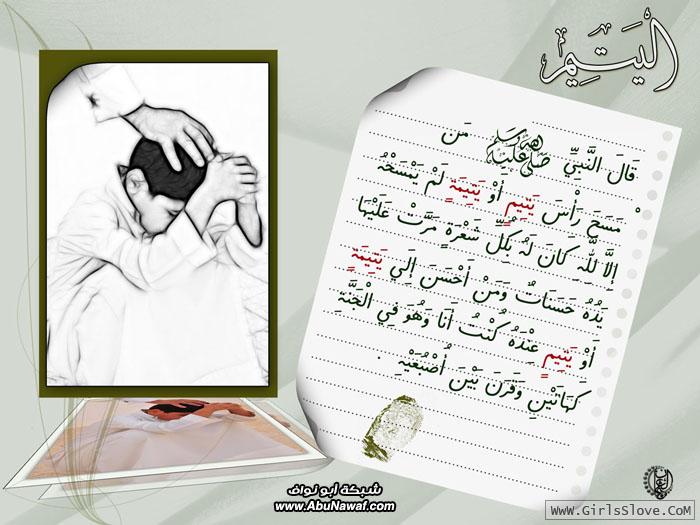 اليتيم
قَالَ النَّبِيِّ صَلَّى اللَّهُ عَلَيْهِ وَسَلَّمَ مَن
مَسَحَ رَأْسَ يَتِيمٍ أَوْ يَتِيمَةٍ لَمْ يَمْسَحْهُ
إِلَّا لِلَّهِ كَانَ لَهُ بِكُلِّ شَعْرَةٍ مَرَّتْ عَلَيْهَا
يَدُهُ حَسَنَاتٌ وَمَنْ أَحْسَنَ إِلَي يَتِيمَةٍ
أَوْ يَتِيمٍ عِنْدَهُ كُنْتُ أَنَا وَهُوَ فِي الْجَنَّةِ
كَهَاتَيْنِ وَقَرَنَ بَيْنَ أُصْبُعَيْهِ .
شبكة أبو نواف
www.AbuNawaf.com
www.GirlsSlove.Com